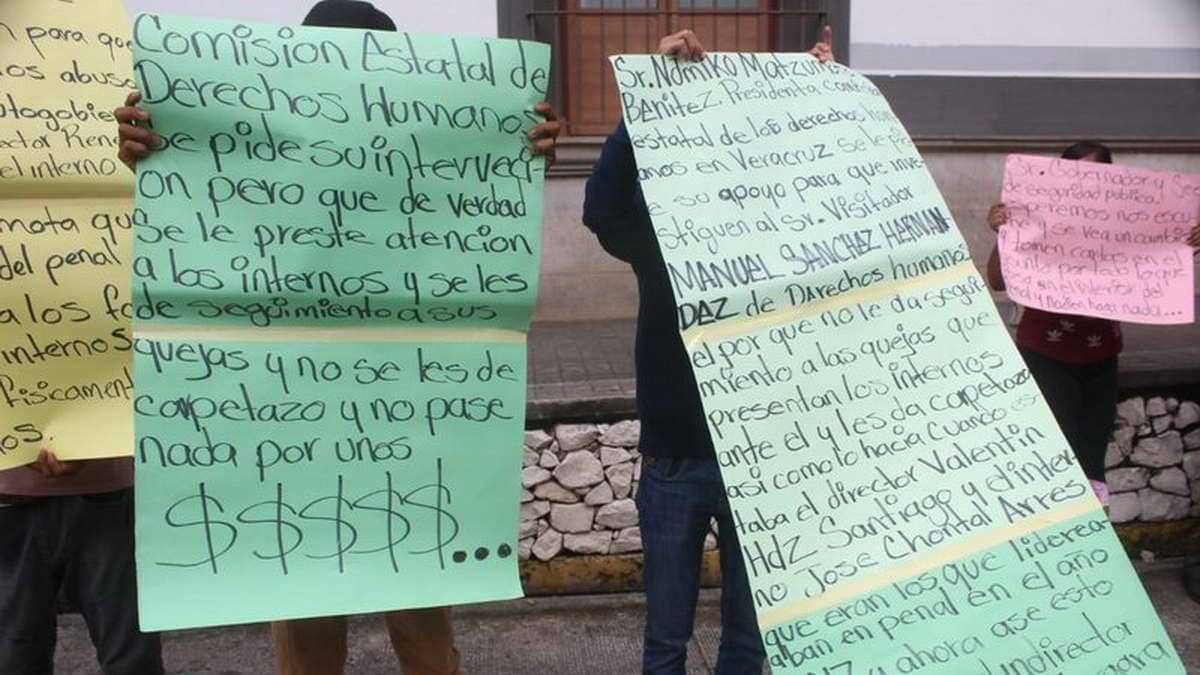 n para que
os abuse
utogobier
ector Rene
el interno
mota que
del penal
a los fa
internos
fisicament
nos.
Comision Estatal de
Derechos Humanos
Se pide su intervegi
on pero que de verdad
se le preste atencion
a los internos y se les
de seguimiento a sus
quejas y no se les de
carpetazo y no pase
nada por unos
$$$$$...
Sr. Namiko Matzumo
Benitez. Presidenta
estatal de los derechos hum
anos en Veracruz se le pi
e su apoyo para que inve
stiguen al Sr. Visitador
MANUEL SANCHAZ HERNAN
DAZ de Derechos humanos
el por que no le da segui
miento a las quejas que
presentan los internos
ante el y les da carpetazo
asi como lo hacia cuando es
taba el director Valentin
HdZ Santiago y el inter
no Jose Chontal Arres
que eran los que liderea
aban en penal en el año
y ahora ase esto
Sr. Gobernador y
de seguridad publica.
esperemos nos escu
y se vea un cambio
tomen cartas en el
por todo lo que
en el interior del
y nadien hace nada...